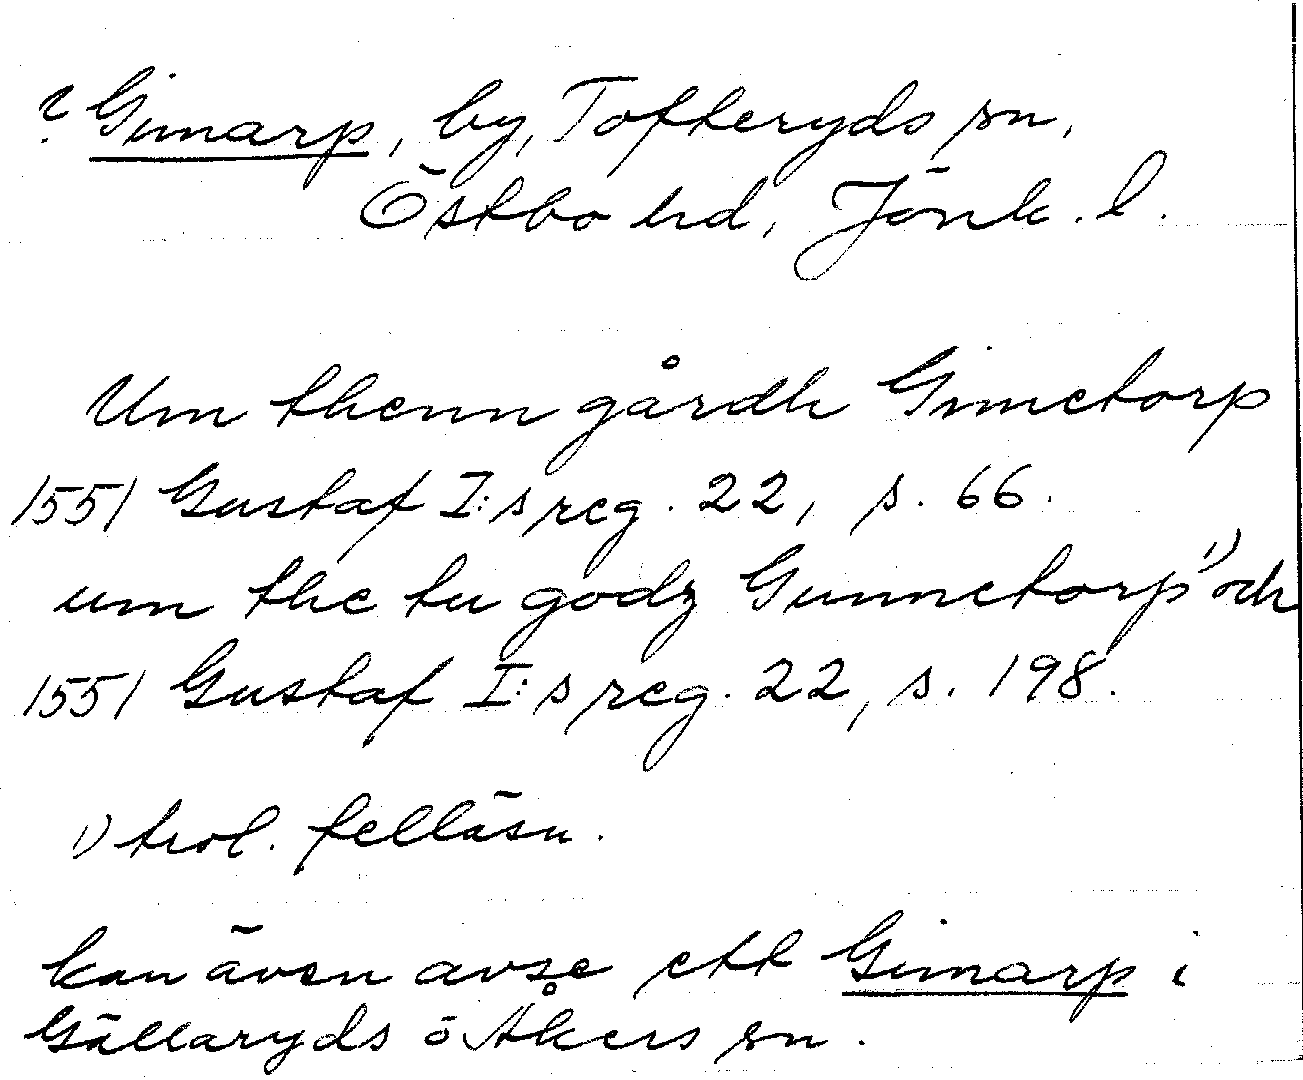 ? Gimarp, by, Tofteryds sn,
Östbo hd, Jönk. l.
Um thenn gårdh Gimetorp
1551 Gustaf I:s reg. 22, s. 66.
um the tu godz Gunnetorp 1) och
1551 Gustaf I:s reg. 22, s. 198.
1) trol. felläsn.
kan även avse ett Gimarp i
Gällaryds o Åkers sn.